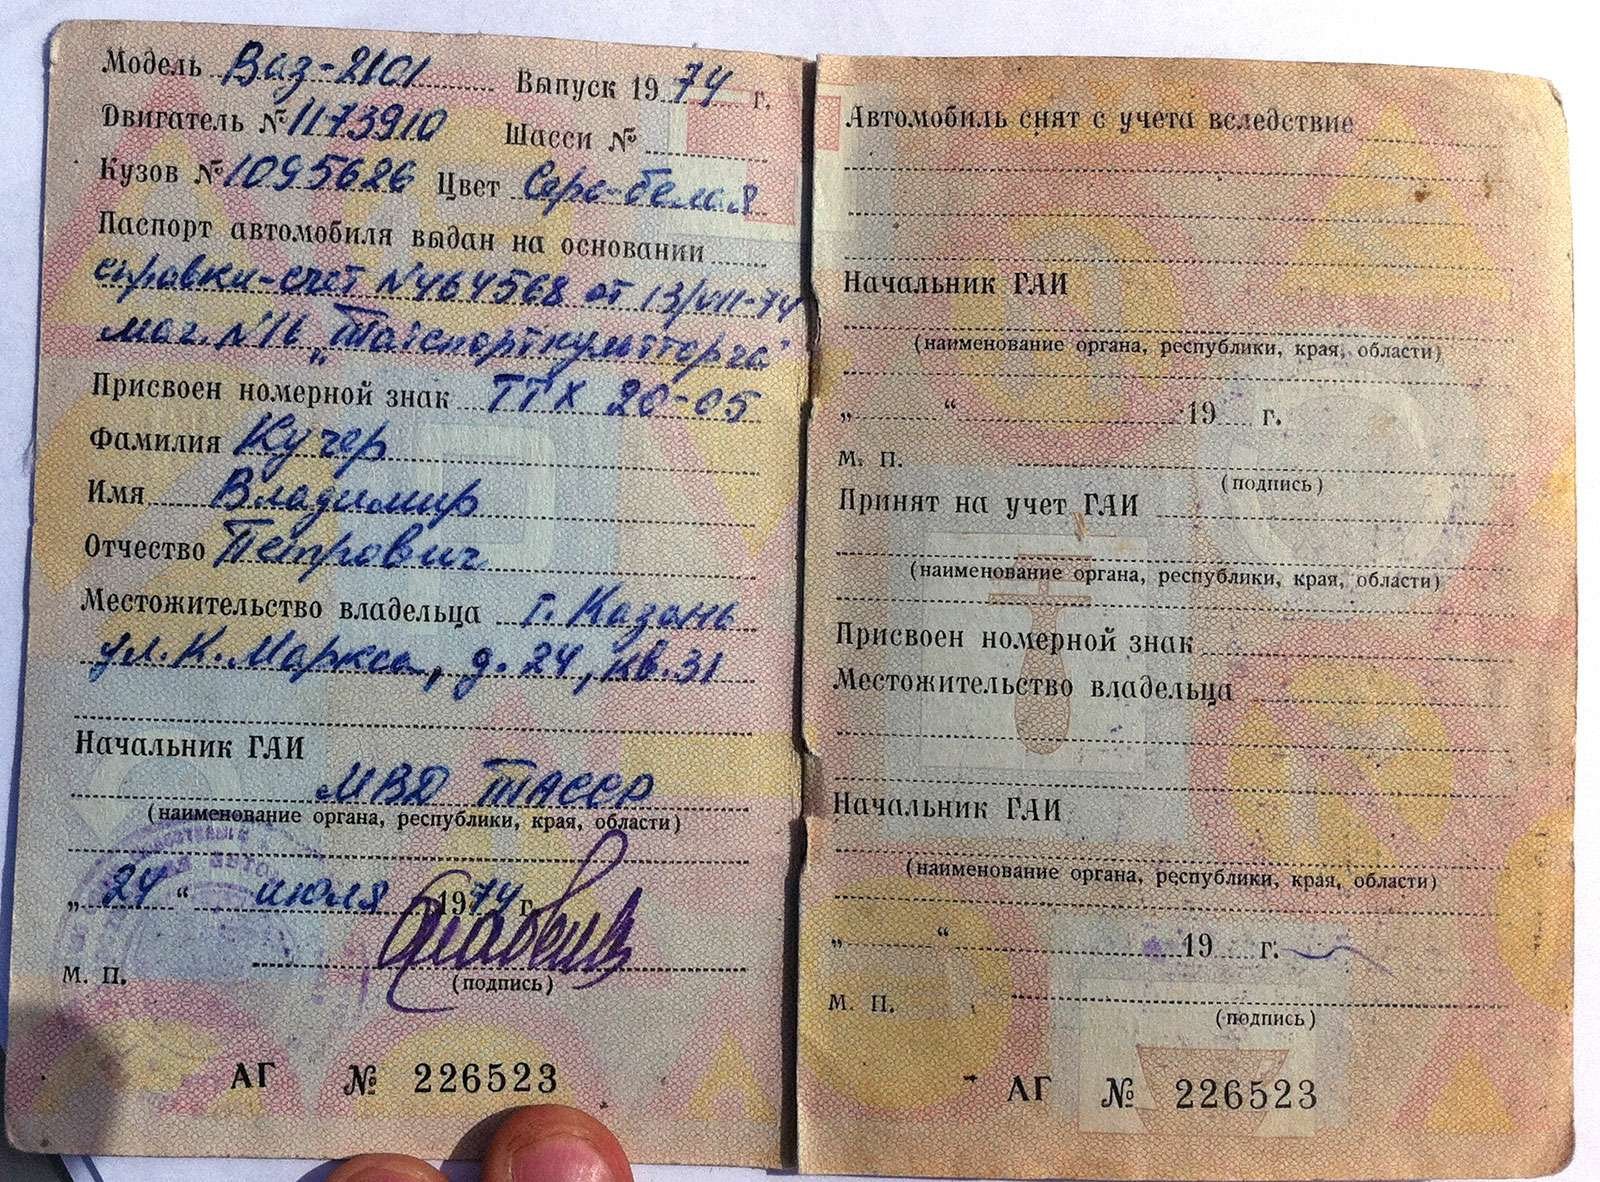 Модель Ваз-2101 Выпуск 1974 г.
Двигатель № 1173910 Шасси №
Кузов № 1095626 Цвет Серо-белая
Паспорт автомобиля выдан на основании
справки-счет N464568 от 13/VII-74
маг. N16 „Татспорткультторга"
Присвоен номерной знак ТТХ 20-05
Фамилия Кучер
Имя Владимир
Отчество Петрович
Местожительство владельца г. Казань
ул. К. Маркса, д. 24, кв. 31
Начальник ГАИ
МВД ТАССР
(наименование органа, республики, края, области)
„ 24 “ июля 1974 г.
М. П.
(подпись)
АГ № 226523
Автомобиль снят с учета вследствие
Начальник ГАИ
(наименование органа, республики, края, области)
„ “ 19 г.
М. П.
(подпись)
Принят на учет ГАИ
(наименование органа, республики, края, области)
Присвоен номерной знак
Местожительство владельца
Начальник ГАИ
(наименование органа, республики, края, области)
„ “ 19 г.
М. П.
(подпись)
АГ № 226523